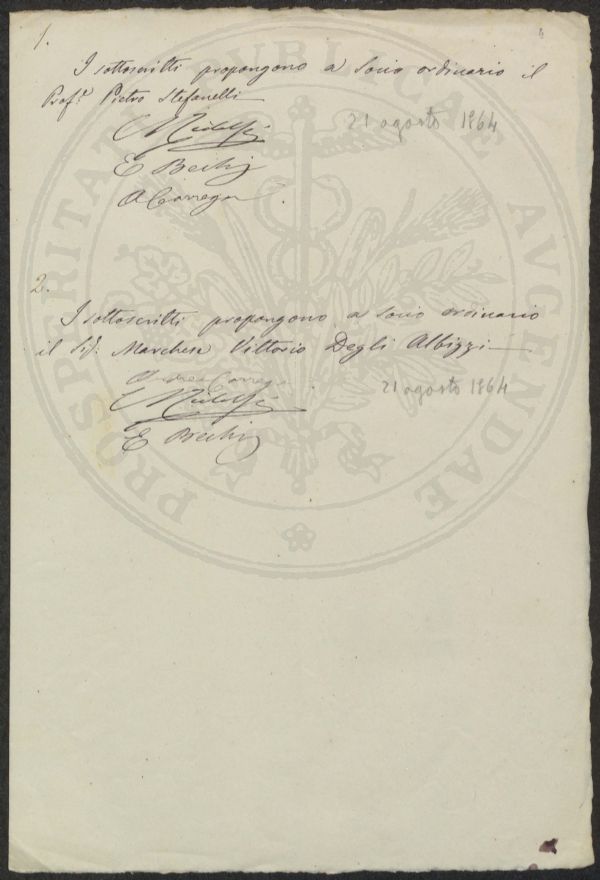 1.
I sottoscritti propongono a Socio ordinario il
Prof.r Pietro Stefanelli
CRidolfi
21 agosto 1864
E Bechi
A Carrega
2.
I sottoscritti propongono a Socio ordinario
il Sig. Marchese Vittorio Degli Albizzi
Andrea Carrega
CRidolfi
21 agosto 1864
E Bechi
PROSPERITATI PUBLICAE AUGENDAE